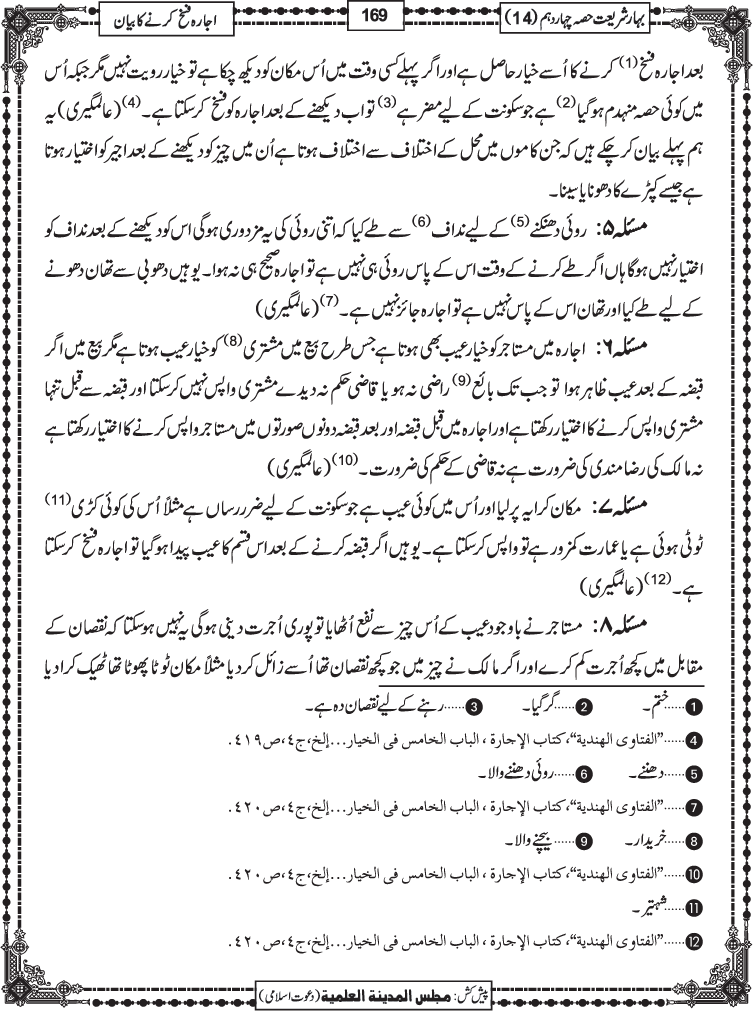 بہار شریعت حصہ چہاردہم (14)
169
اجارہ فسخ کرنے کا بیان
بعد اجارہ فسخ(1) کرنے کا اُسے خیار حاصل ہے اور اگر پہلے کسی وقت میں اُس مکان کو دیکھ چکا ہے تو خیار رویت نہیں مگر جبکہ اُس
میں کوئی حصہ منہدم ہوگیا(2) ہے جو سکونت کے لیے مضر ہے(3) تو اب دیکھنے کے بعد اجارہ کو فسخ کرسکتا ہے۔(4) (عالمگیری) یہ
ہم پہلے بیان کرچکے ہیں کہ جن کاموں میں محل کے اختلاف سے اختلاف ہوتا ہے اُن میں چیز کو دیکھنے کے بعد اجیر کو اختیار ہوتا
ہے جیسے کپڑے کا دھونا یا سینا۔
مسئلہ ۵: روئی دھنکنے(5) کے لیے نداف(6) سے طے کیا کہ اتنی روئی کی یہ مزدوری ہوگی اس کو دیکھنے کے بعد نداف کو
اختیار نہیں ہوگا ہاں اگر طے کرنے کے وقت اس کے پاس روئی ہی نہیں ہے تو اجارہ صحیح ہی نہ ہوا۔ یوہیں دھوبی سے تھان دھونے
کے لیے طے کیا اور تھان اس کے پاس نہیں ہے تو اجارہ جائز نہیں ہے۔(7) (عالمگیری)
مسئلہ ۶: اجارہ میں مستاجر کو خیار عیب بھی ہوتا ہے جس طرح بیع میں مشتری(8) کو خیار عیب ہوتا ہے مگر بیع میں اگر
قبضہ کے بعد عیب ظاہر ہوا تو جب تک بائع(9) راضی نہ ہو یا قاضی حکم نہ دیدے مشتری واپس نہیں کرسکتا اور قبضہ سے قبل تنہا
مشتری واپس کرنے کا اختیار رکھتا ہے اور اجارہ میں قبل قبضہ اور بعد قبضہ دونوں صورتوں میں مستاجر واپس کرنے کا اختیار رکھتا ہے
نہ مالک کی رضا مندی کی ضرورت ہے نہ قاضی کے حکم کی ضرورت۔(10) (عالمگیری)
مسئلہ ۷: مکان کرایہ پر لیا اور اُس میں کوئی عیب ہے جو سکونت کے لیے ضرر رساں ہے مثلاً اُس کی کوئی کڑی(11)
ٹوٹی ہوئی ہے یا عمارت کمزور ہے تو واپس کرسکتا ہے۔ یوہیں اگر قبضہ کرنے کے بعد اس قسم کا عیب پیدا ہوگیا تو اجارہ فسخ کرسکتا
ہے۔(12) (عالمگیری)
مسئلہ ۸: مستاجر نے باوجود عیب کے اُس چیز سے نفع اُٹھایا تو پوری اُجرت دینی ہوگی یہ نہیں ہوسکتا کہ نقصان کے
مقابل میں کچھ اُجرت کم کرے اور اگر مالک نے چیز میں جو کچھ نقصان تھا اُسے زائل کردیا مثلاً مکان ٹوٹا پھوٹا تھا ٹھیک کرادیا
1......ختم۔ 2......گرگیا۔ 3......رہنے کے لیے نقصان دہ ہے۔
4......”الفتاوی الھندیة“،کتاب الإجارة ، الباب الخامس فی الخیار...إلخ،ج٤،ص٤١٩.
5......دھننے۔ 6......روئی دھننے والا۔
7......”الفتاوی الھندیة“،کتاب الإجارة ، الباب الخامس فی الخیار...إلخ،ج٤،ص٤٢٠.
8......خریدار۔ 9......بیچنے والا۔
10......”الفتاوی الھندیة“،کتاب الإجارة ، الباب الخامس فی الخیار...إلخ،ج٤،ص٤٢٠.
11......شہتیر۔
12......”الفتاوی الھندیة“،کتاب الإجارة ، الباب الخامس فی الخیار...إلخ،ج٤،ص٤٢٠.
پیش کش: مجلس المدینة العلمیة (دعوت اسلامی)